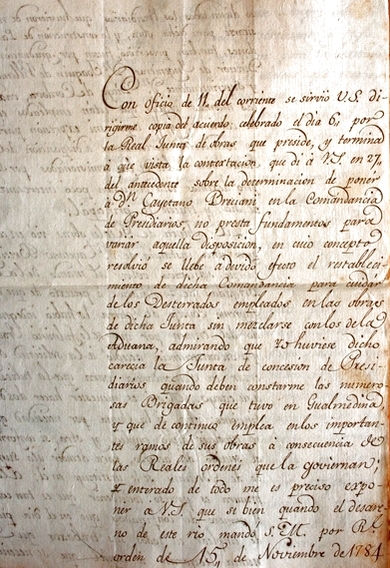 Con oficio de 11. del corriente se sirviò V.S. di-
rigirme copia del acuerdo celebrado el dia 6, por
la Real Junta de obras que preside, y termina
à que vista la contestacion, que di à V.S. en 27,
del antecedente sobre la determinacion de poner
à Dn. Cayetano Dreuani, en la Comandancia
de Presidiarios, no presta fundamentos para
variar aquella disposicion, en cuio concepto
resolviò se llebe à devido efecto el restableci-
miento de dicha Comandancia para cuidar
de los Desterrados empleados en las obras
de dicha Junta sin mezclarse con los de la
Aduana, admirando que Yo huviese dicho
carecia la Junta de concesion de Presi-
diarios, quando deben constarme las numero-
sas Brigadas que tuvo en Gualmedina
y que de continuo emplea en los importan-
tes ramos de sus obras à consequencia de
las Reales ordenes que la goviernan;
y enterado de todo me es preciso expo-
ner à V.S. que se bien quando el desare-
no de este rio mandò S.M. por Rl.
orden de 15, de Noviembre de 1784